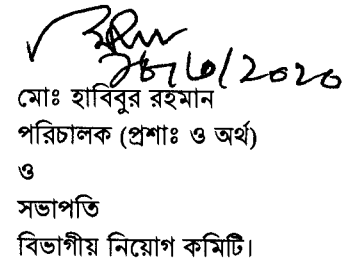 মোঃ হাবিবুর রহমান
পরিচালক (প্রশাঃ ও অর্থ)
ও
সভাপতি
বিভাগীয় নিয়োগ কমিটি।